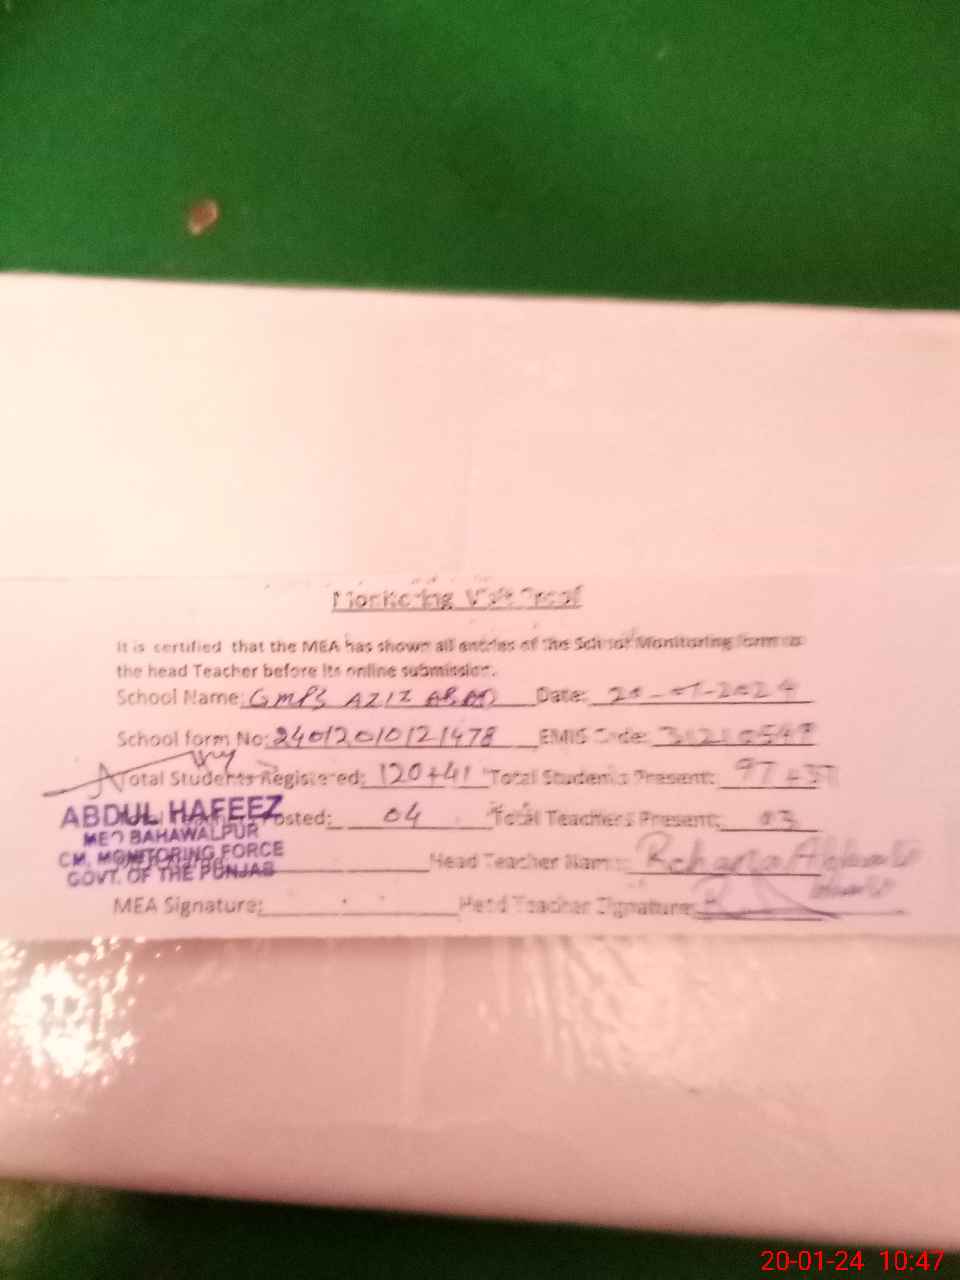 Monitoring Visit Proof
It is certified that the MEA has shown all entries of the School Monitoring form to
the head Teacher before its online submission.
School Name: GMPS AZIZ ABAD Date: 20-01-2024
School form No: 24012010121478 EMIS Code:
Total Students Registered: 120+41 Total Students Present: 97+37
ABDUL HAFEEZ
Posted: 04 Total Teachers Present: 03
MEO BAHAWALPUR
CM, MONITORING FORCE
Head Teacher Name: Rehana
GOVT. OF THE PUNJAB
MEA Signature: Head Teacher Signature:
20-01-24 10:47